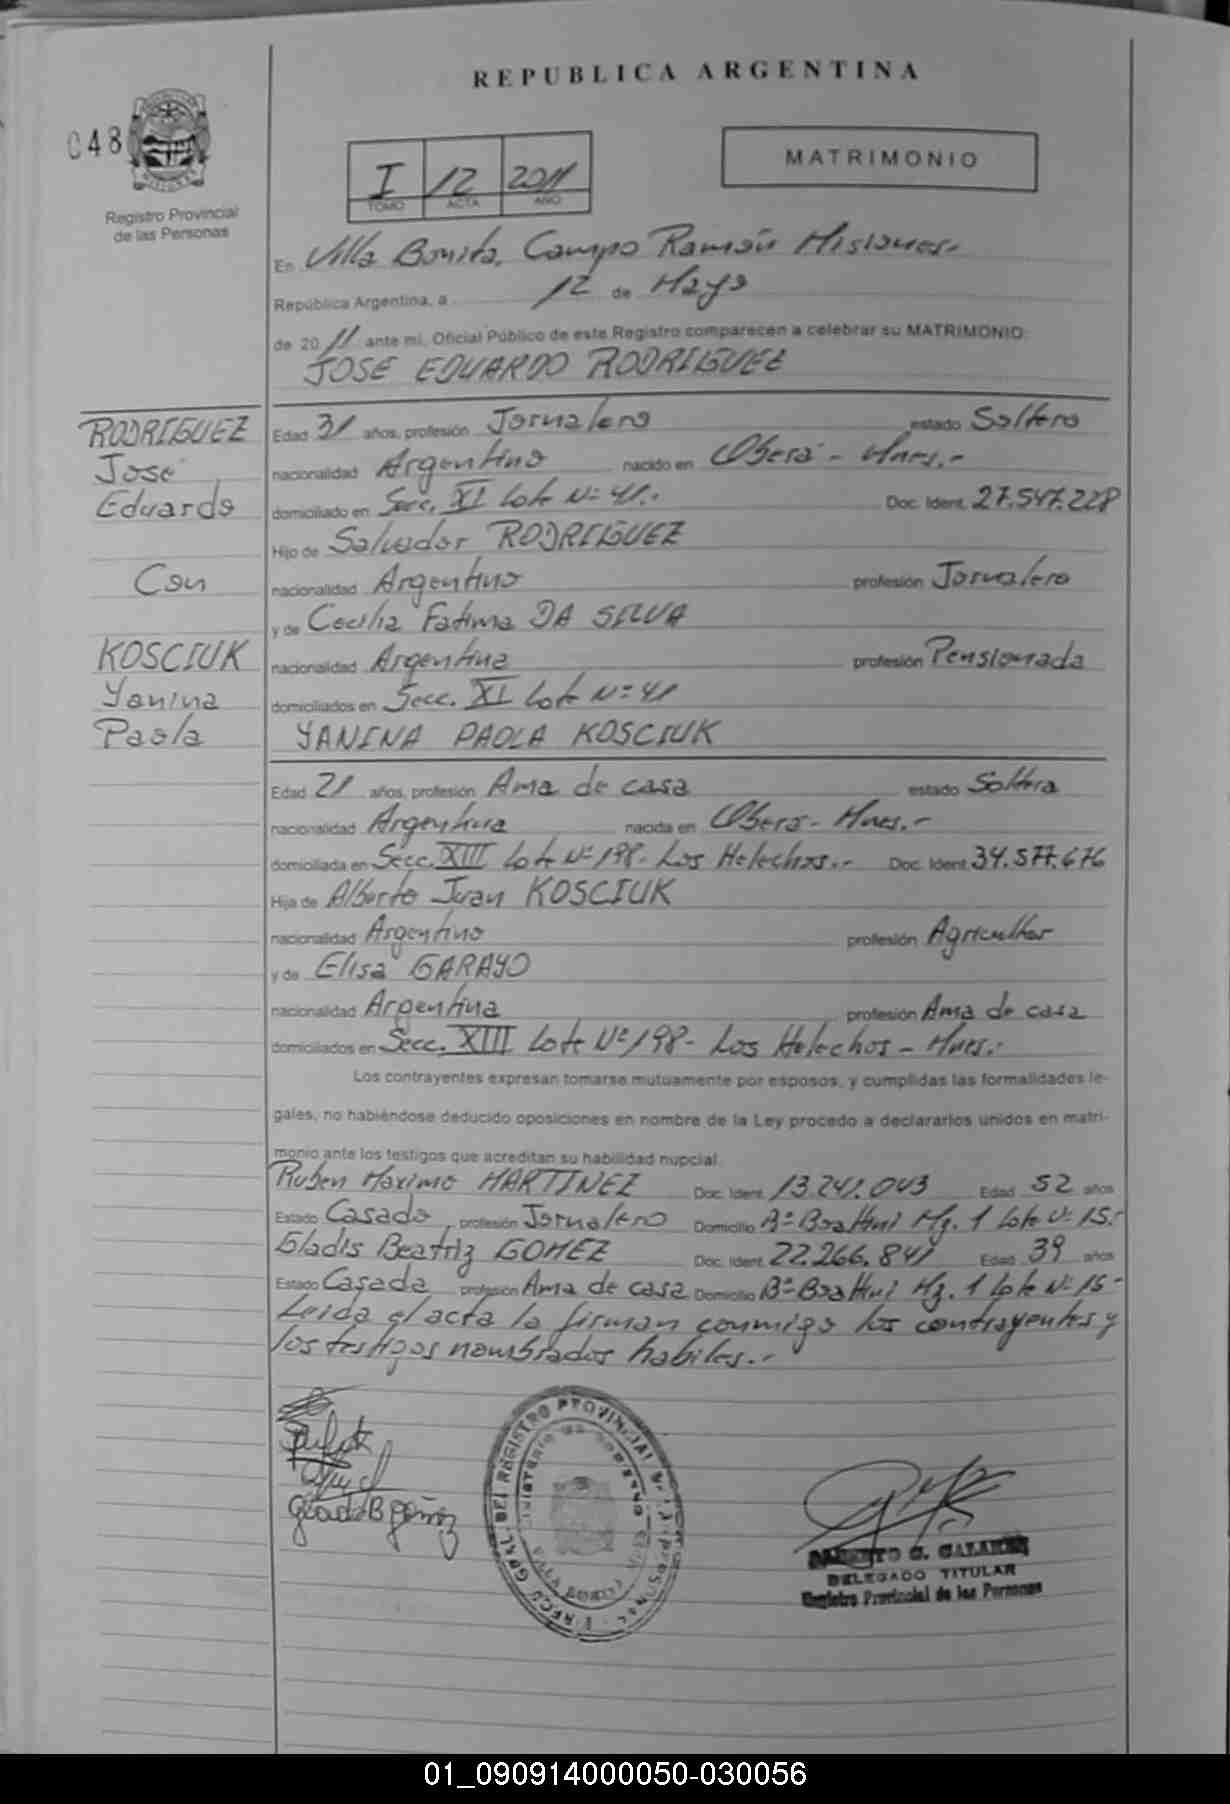 REPUBLICA ARGENTINA
048
MISIONES
Registro Provincial
de las Personas
I 12 2011
TOMO ACTA AÑO
MATRIMONIO
En Villa Bonita, Campo Ramón Misiones.-
República Argentina, a 12 de Mayo
de 2011 ante mi, Oficial Público de este Registro comparecen a celebrar su MATRIMONIO:
JOSE EDUARDO RODRIGUEZ
RODRIGUEZ
José
Eduardo
Con
KOSCIUK
Yanina
Paola
Edad 31 años, profesión Jornalero estado Soltero
nacionalidad Argentino nacido en Oberá - Mnes.-
domiciliado en Secc. XI Lote Nº 41.- Doc. Ident. 27.547.228
Hijo de Salvador RODRIGUEZ
nacionalidad Argentino profesión Jornalero
y de Cecilia Fatima DA SILVA
nacionalidad Argentina profesión Pensionada
domiciliados en Secc. XI Lote Nº 41
YANINA PAOLA KOSCIUK
Edad 21 años, profesión Ama de casa estado Soltera
nacionalidad Argentina nacida en Oberá - Mnes.-
domiciliada en Secc. XIII Lote Nº 198- Los Helechos.- Doc. Ident. 34.577.676
Hija de Alberto Juan KOSCIUK
nacionalidad Argentino profesión Agricultor
y de Elisa GARAYO
nacionalidad Argentina profesión Ama de casa
domiciliados en Secc. XIII Lote Nº 198- Los Helechos - Mnes.-
Los contrayentes expresan tomarse mutuamente por esposos, y cumplidas las formalidades le-
gales, no habiéndose deducido oposiciones en nombre de la Ley procedo a declararlos unidos en matri-
monio ante los testigos que acreditan su habilidad nupcial.
Ruben Maximo MARTINEZ Doc. Ident. 13.241.043 Edad 52 años
Estado Casado, profesión Jornalero Domicilio Bº Mz. 1 Lote Nº 15.-
Gladis Beatriz GOMEZ Doc. Ident. 22.266.841 Edad 39 años
Estado Casada profesión Ama de casa Domicilio Bº Mz. 1 Lote Nº 15-
Leida el acta la firman conmigo los contrayentes y
los testigos nombrados habiles.-
DIRECC. GRAL. DEL REGISTRO PROVINCIAL DE LAS PERSONAS
MINISTERIO DE GOBIERNO
G.
DELEGADO TITULAR
Registro Provincial de las Personas
01_090914000050-030056